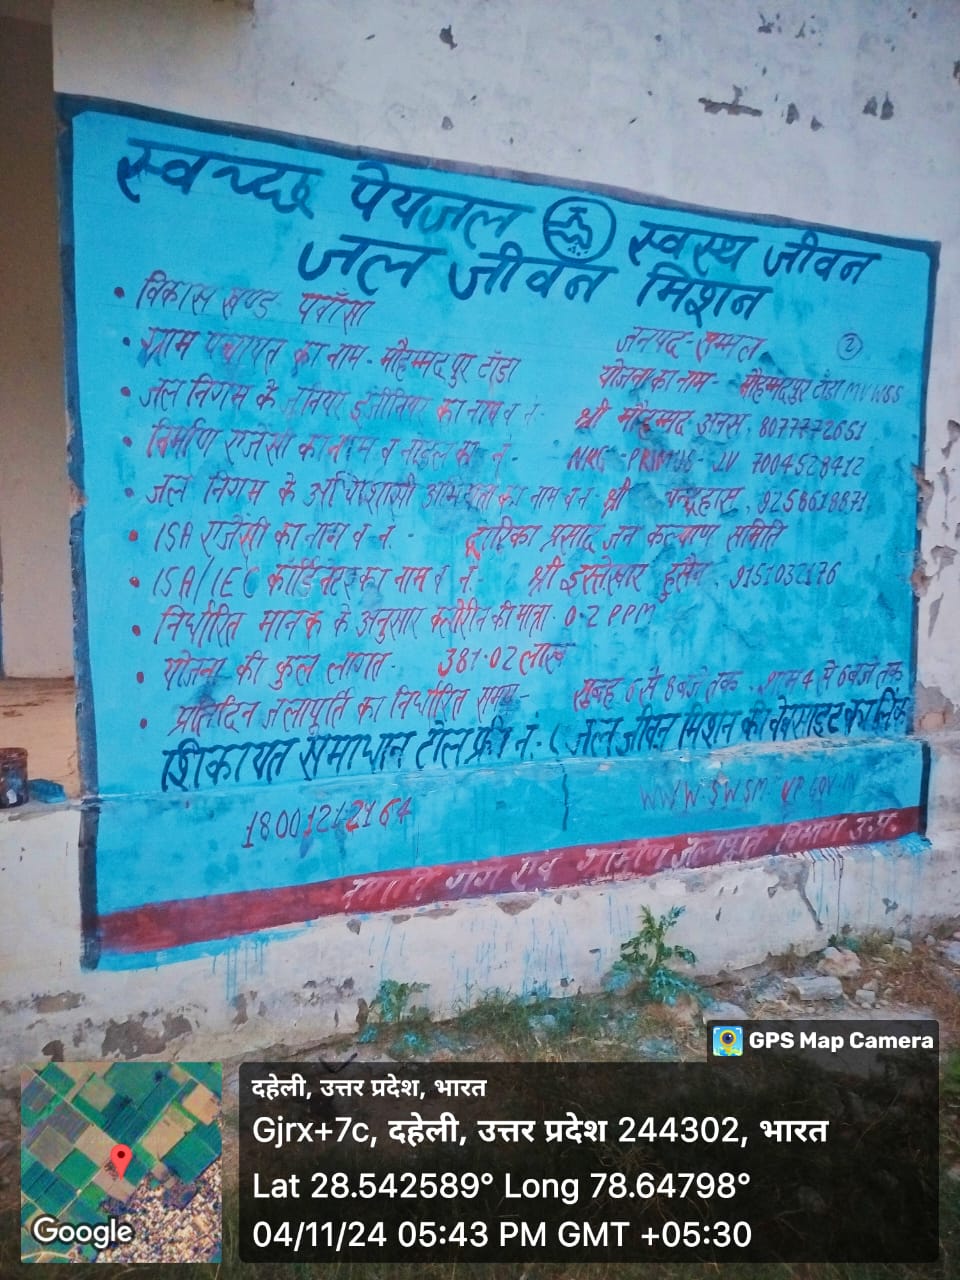 स्वच्छ पेयजल स्वस्थ जीवन
जल जीवन मिशन
• विकास खण्ड पवाँसा जनपद-सम्भल 2
• ग्राम पंचायत का नाम - मौहम्मदपुर टाँडा योजना का नाम - मौहम्मदपुर टाँडा MVWSS
• जल निगम के जूनियर इंजीनियर का नाम व नं - श्री मौहम्मद अनस, 8077772651
• निर्माण एजेंसी का नाम व मोबाइल का नं - NKC-PRIMUS-JV 7004528412
• जल निगम के अधिशासी अभियंता का नाम व नं श्री चन्द्रहास, 9258618871
• ISA एजेंसी का नाम व नं. - द्वारिका प्रसाद जन कल्याण समिति
• ISA/IEC का नाम व नं. - श्री हुसैन, 9151032176
• निर्धारित मानक के अनुसार क्लोरीन की मात्रा 0.2 PPM
• योजना की कुल लागत - 381.02 लाख
• प्रतिदिन जलापूर्ति का निर्धारित समय - सुबह 6 से 8 बजे तक, शाम 4 से 6 बजे तक
शिकायत समाधान टोल फ्री नं. ( जल जीवन मिशन की वेबसाइट का लिंक
18001212164 WWW.SWSM.UP.GOV.IN
नमामि गंगे एवं ग्रामीण जलापूर्ति विभाग उ.प्र.
GPS Map Camera
दहेली, उत्तर प्रदेश, भारत
Gjrx+7c, दहेली, उत्तर प्रदेश 244302, भारत
Lat 28.542589° Long 78.64798°
04/11/24 05:43 PM GMT +05:30
Google